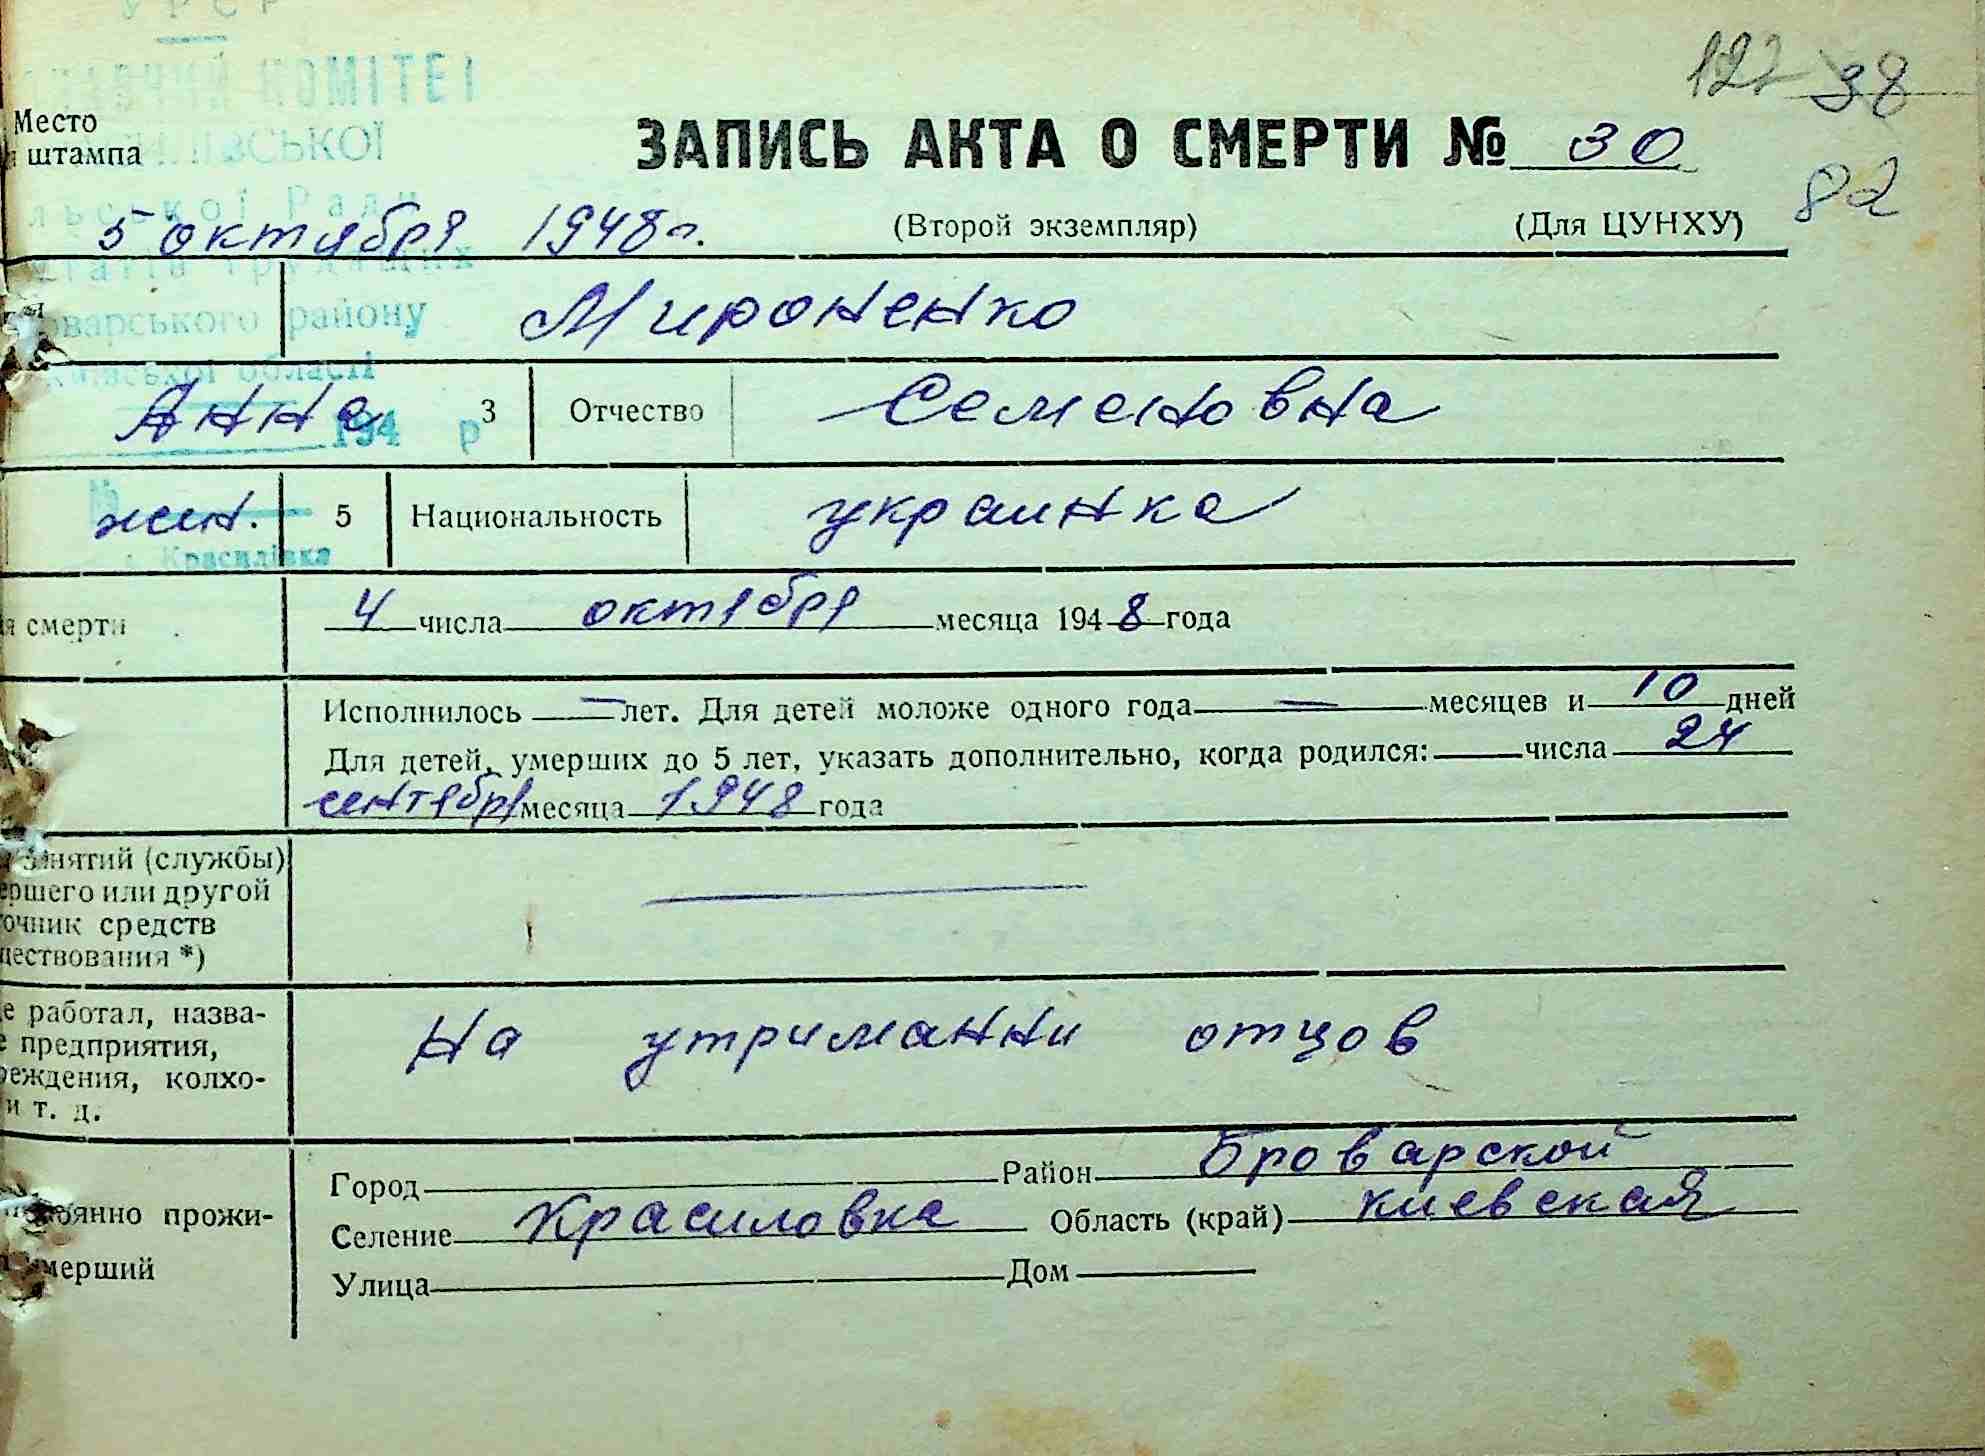 УРСР
КОМІТЕТ
СЬКОЇ
ської Ради
трудящих
оварського району
Київської області
194 р
№
с. Красилівка
122 38
82
Место
штампа
ЗАПИСЬ АКТА О СМЕРТИ № 30
5 октября 1948 г.
(Второй экземпляр) (Для ЦУНХУ)
Мироненко
Анна 3 Отчество Семеновна
жен. 5 Национальность украинка
я смерти 4 числа октября месяца 1948 года
Исполнилось — лет. Для детей моложе одного года — месяцев и 10 дней
Для детей, умерших до 5 лет, указать дополнительно, когда родился: числа 24
сентября месяца 1948 года
занятий (службы)
ершего или другой
очник средств
ществования *)
—
е работал, назва-
е предприятия,
реждения, колхо-
и т. д.
На утриманни отцов
Город Район Броварской
оянно прожи-
Селение Красиловка Область (край) Киевская
мерший
Улица Дом